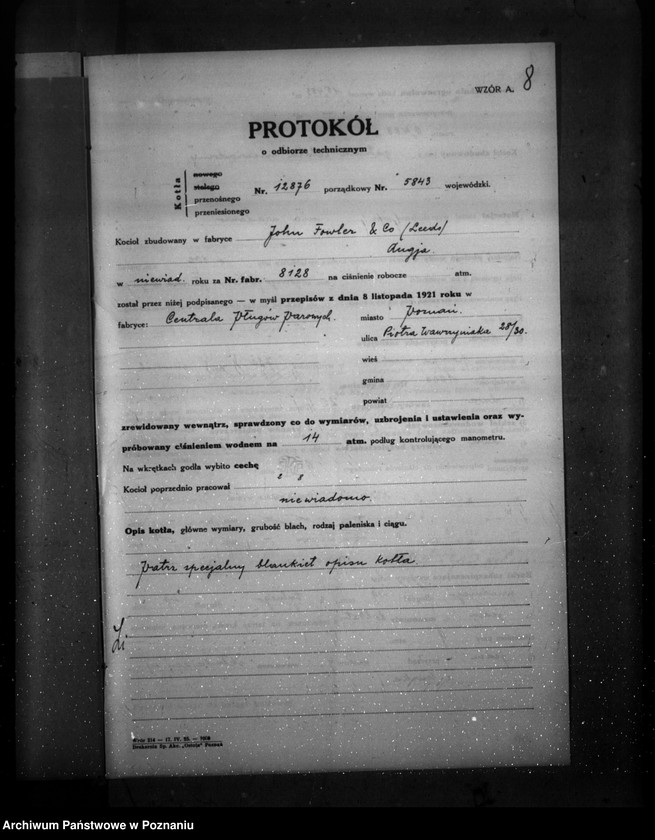 WZÓR A. 8
PROTOKÓŁ
o odbiorze technicznym
Kotła
nowego
stałego
przenośnego
przeniesionego
Nr. 12876 porządkowy Nr. 5843 wojewódzki.
Kocioł zbudowany w fabryce John Fowler & Co (Leeds)
Angja
w niewiad. roku za Nr. fabr. 8128 na ciśnienie robocze atm.
został przez niżej podpisanego — w myśl przepisów z dnia 8 listopada 1921 roku w
fabryce: Centrala Pługów Parowych.
miasto Poznań.
ulica Piotra Wawrzyniaka 28/30.
wieś
gmina
powiat
zrewidowany wewnątrz, sprawdzony co do wymiarów, uzbrojenia i ustawienia oraz wy-
próbowany ciśnieniem wodnem na 14 atm. podług kontrolującego manometru.
Na wkrętkach godła wybito cechę
Kocioł poprzednio pracował
niewiadomo.
Opis kotła, główne wymiary, grubość blach, rodzaj paleniska i ciągu.
Patrz specjalny blankiet opisu kotła.
Wzór 214 — 17. IV. 25. —
Drukarnia Sp. Akc. „Ostoja” Poznań
Archiwum Państwowe w Poznaniu